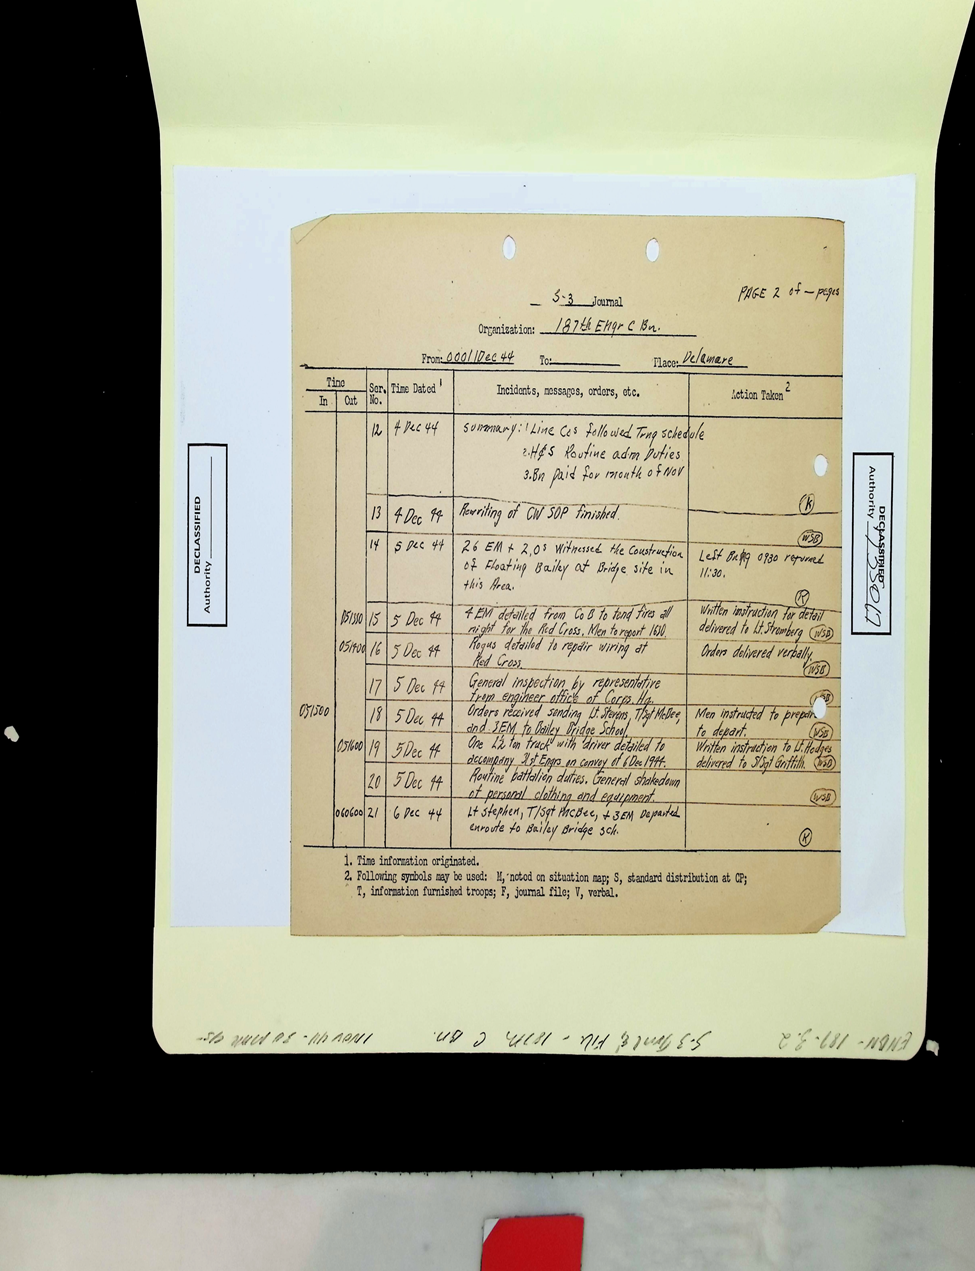 PAGE 2 of — pages
S-3 Journal
Organization: 187th Engr C Bn.
From: 0001 1 Dec 44 To: Place: Delamare
Time
In Out Ser. No. Time Dated 1 Incidents, messages, orders, etc. Action Taken 2
12 4 Dec 44 Summary: 1 Line Cos followed Trng schedule
2. H&S Routine adm Duties
3. Bn paid for month of Nov
K
13 4 Dec 44 Rewriting of CW SOP finished.
WSB
14 5 Dec 44 26 EM + 2, Os Witnessed the Construction Left Bn Hq 0930 returned
of Floating Bailey at Bridge site in 11:30.
this Area.
K
051300 15 5 Dec 44 4 EM detailed from Co B to tend fires all Written instruction for detail
night for the Red Cross. Men to report 1630. delivered to Lt. Stromberg WSB
051400 16 5 Dec 44 Rogus detailed to repair wiring at Orders delivered verbally
Red Cross. WSB
17 5 Dec 44 General inspection by representative
from engineer office of Corps. Hq. WSB
051500 18 5 Dec 44 Orders received sending Lt. Stevens, T/Sgt McBee, Men instructed to prepare
and 3EM to Bailey Bridge School. to depart. WSB
051600 19 5 Dec 44 One 1½ ton truck with driver detailed to Written instruction to Lt. Hodges
accompany 31st Engrs on convoy of 6 Dec 1944. delivered to S/Sgt Griffith. WSB
20 5 Dec 44 Routine battalion duties. General shakedown
of personal clothing and equipment. WSB
060600 21 6 Dec 44 Lt Stephen, T/Sgt McBee, + 3EM Departed
enroute to Bailey Bridge sch. K
1. Time information originated.
2. Following symbols may be used: M, noted on situation map; S, standard distribution at CP;
T, information furnished troops; F, journal file; V, verbal.
DECLASSIFIED
Authority
DECLASSIFIED
Authority
ENBN - 187 - 3.2 S-3 Jrnl & File - 187th C Bn. 1 Nov 44 - 30 Mar 45